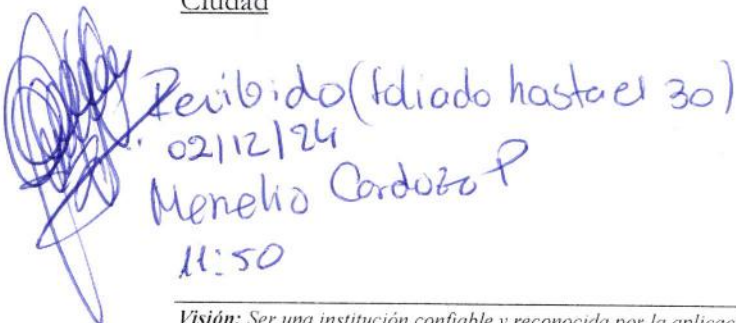 Ciudad
Recibido (foliado hasta el 30)
02/12/24
Menelio Cardozo P
11:50
Visión: Ser una institución confiable y reconocida por la aplicac